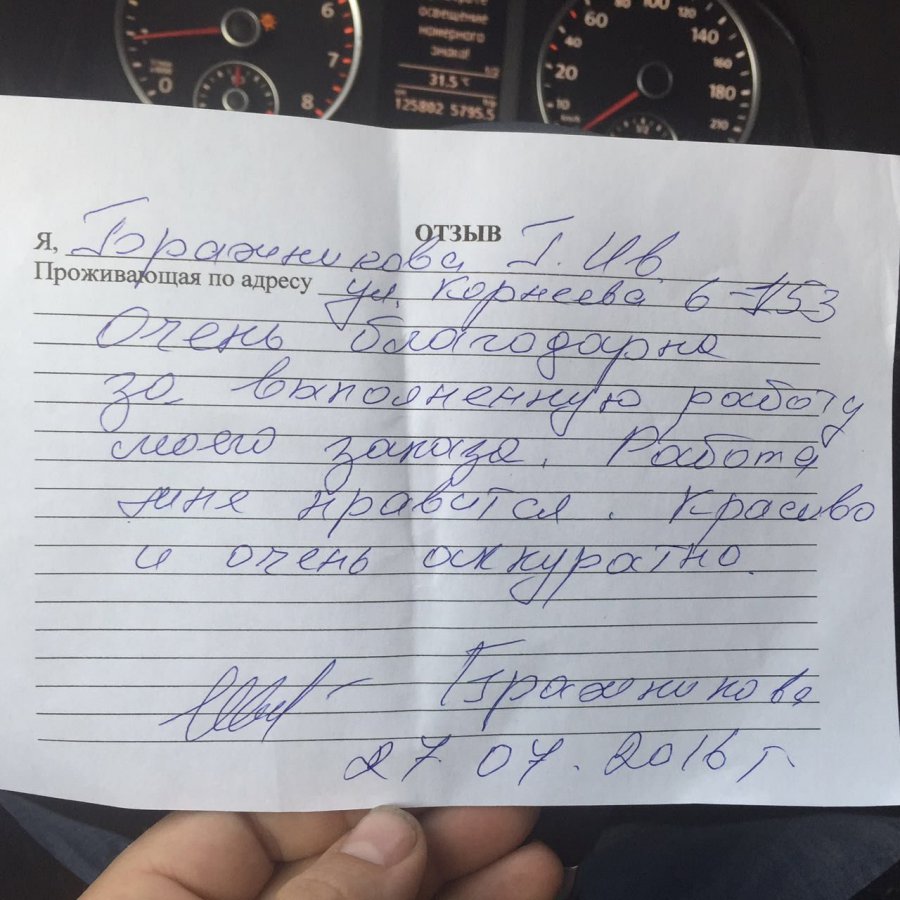 6
7
8
0
освещение
номерного
знака!
31.5 °C
125802 5795.5
10
20
40
60
80
100
120
140
160
180
210
km/h
ОТЗЫВ
Я, Бражникова Т. Ив
Проживающая по адресу ул. Корнеева 6-153
Очень благодарна
за выполненную работу
моего заказа. Работа
мне нравится. Красиво
и очень аккуратно.
Бражникова
27 07. 2016 г